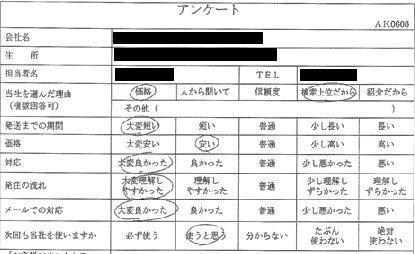 アンケート
AK0606
会社名
住 所
担当者名 TEL
当社を選んだ理由 価格 人から聞いて 信頼度 検索上位だから 紹介だから
(複数回答可) その他 ( )
発送までの期間 大変短い 短い 普通 少し長い 長い
価格 大変安い 安い 普通 少し高い 高い
対応 大変良かった 良かった 普通 少し悪かった 悪い
発注の流れ 大変理解し 理解し 普通 少し理解し 理解し
やすかった やすかった ずらかった ずらかった
メールでの対応 大変良かった 良かった 普通 少し悪かった 悪い
次回も当社を使いますか 必ず使う 使うと思う 分からない たぶん 絶対
使わない 使わない